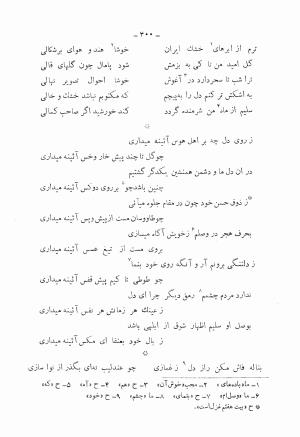 - ۳۰۰ -
ترم از ابرهای¹ خشك ایران خوشا² هند و هوای برشگالی
گل امید من تا کی به بزمش شود پامال چون گلهای قالی
ترا شب تا سحر دارد در³ آغوش خوشا احوال تصویر نهالی
به اشکش تر کنم دل را بپیچم که مکتوبم نباشد خشك و خالی
سلیم از ماه⁴ من شرمنده گردد کند خورشید اگر صاحب کمالی
*
ز روی دل چه بر اهل هوس آئینه میداری
چو گل تا چند پیش خار و خس آئینه میداری
در ان دل ما و دشمن همنشین یکدگر گشتیم
چنین باشد چو⁵ بر روی دو کس آئینه میداری
*ز ذوق حسن خود چون در مقام جلوه میآئی
چو طاووسان مست از پیش و پس آئینه میداری
بحرف هجر در وصلم⁶ ز خویش آگاه میسازی
بروی مست از تیغ عسس آئینه میداری
ز دلتنگی برونم آر و آنگه روی خود بنما⁷
چو طوطی تا کیم پیش قفس آئینه میداری
ندارد مردم چشمم⁸ رمق دیگر چرا ای دل
ز عینك هر زمانش هر نفس آئینه میداری
بوصل او سلیم اظهار شوق از ابلهی باشد
ز بال خود بعنقا ای مگس آئینه میداری
*
بناله فاش مکن راز دل⁹ ز غمازی چو عندلیب نه‌ای بگذر از نوا سازی
۱ـ ماه باده‌های» ۲ـ ۳ـ ح «هم» ۴ـ ح «آه» ۵ـ ح «که»
۶ـ ما «وصل‌ام» ۷ـ ح «بنمای» ۸ـ ما «چشم» ۹ـ ح «خود»
* ح «بیت هفتم غزل است».